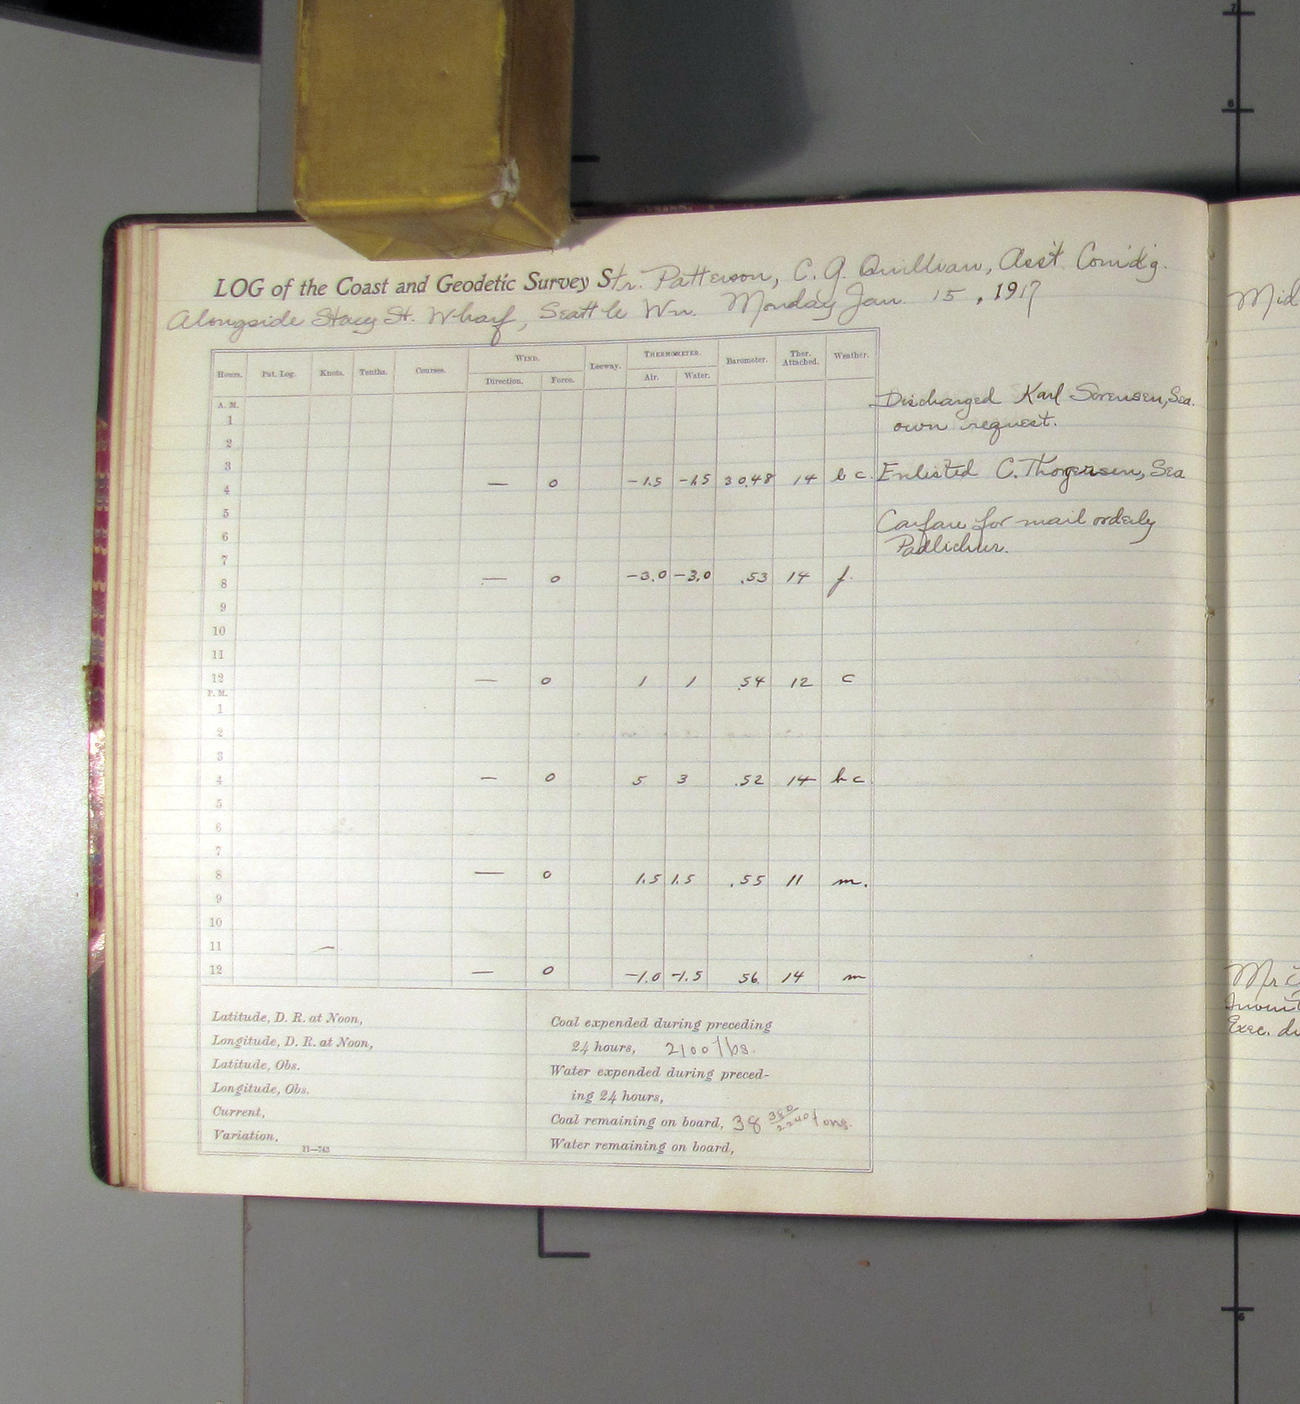 LOG of the Coast and Geodetic Survey Str. Patterson, C. G. Quillian, Ass't Comd'g.
Alongside Stacy St. Wharf, Seattle Wn. Monday Jan. 15, 1917
Hours. Pat. Log. Knots. Tenths. Courses. WIND. Leeway. THERMOMETER. Barometer. Ther. Attached. Weather.
Direction. Force. Air. Water.
A. M.
1
2
3
4 — 0 -1.5 -1.5 30.48 14 b c.
5
6
7
8 — 0 -3.0 -3.0 .53 14 f.
9
10
11
12 — 0 1 1 .54 12 c
P. M.
1
2
3
4 — 0 5 3 .52 14 b c.
5
6
7
8 — 0 1.5 1.5 .55 11 m.
9
10
11 —
12 — 0 -1.0 -1.5 56 14 m
Discharged Karl Sorensen, Sea.
own request.
Enlisted C. Thogersen, Sea
Carfare for mail orderly
Latitude, D. R. at Noon,
Longitude, D. R. at Noon,
Latitude, Obs.
Longitude, Obs.
Current,
Variation,
11—743
Coal expended during preceding
24 hours, 2100 lbs.
Water expended during preced-
ing 24 hours,
Coal remaining on board, 38 380/2240 tons.
Water remaining on board,
Mid
Mr
Exec.
7
8
6